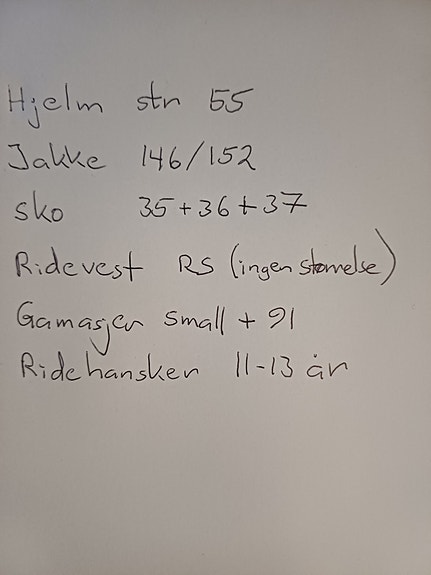 Hjelm str 55
Jakke 146/152
sko 35+36+37
Ridevest RS (ingen størrelse)
Gamasjer small + 91
Ridehansker 11-13 år